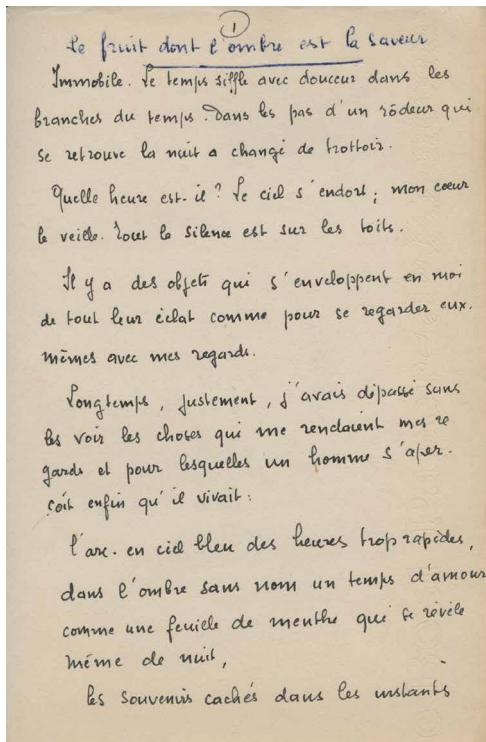 1
Le fruit dont l'ombre est la saveur
Immobile. Le temps siffle avec douceur dans les
branches du temps. Dans les pas d'un rôdeur qui
se retrouve la nuit a changé de trottoir.
Quelle heure est-il? Le ciel s'endort; mon coeur
le veille. Tout le silence est sur les toits.
Il y a des objets qui s'enveloppent en moi
de tout leur éclat comme pour se regarder eux-
mêmes avec mes regards.
Longtemps, justement, j'avais dépassé sans
les voir les choses qui me rendaient mes re
gards et pour lesquelles un homme s'aper-
çoit enfin qu'il vivait:
l'arc-en ciel bleu des heures trop rapides,
dans l'ombre sans nom un temps d'amour
comme une feuille de menthe qui se révèle
même de nuit,
les souvenirs cachés dans les instants